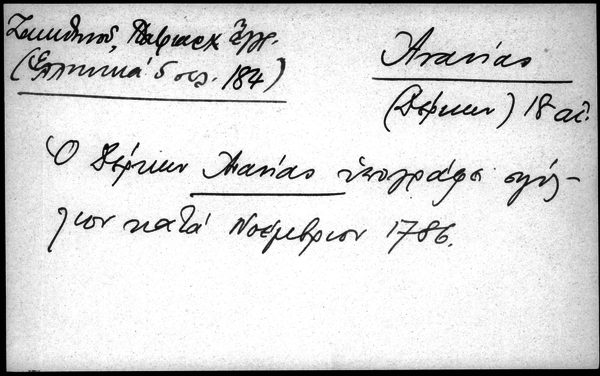 Ζακυθηνοῦ, Πατριαρχ. ἔγγρ.
(Ἑλληνικά 5 σελ. 184)
Ἀνανίας
(Δέρκων) 18 αἰ.
Ὁ Δέρκων Ἀνανίας ὑπογράφει σιγίλ-
λιον κατά Νοέμβριον 1786.